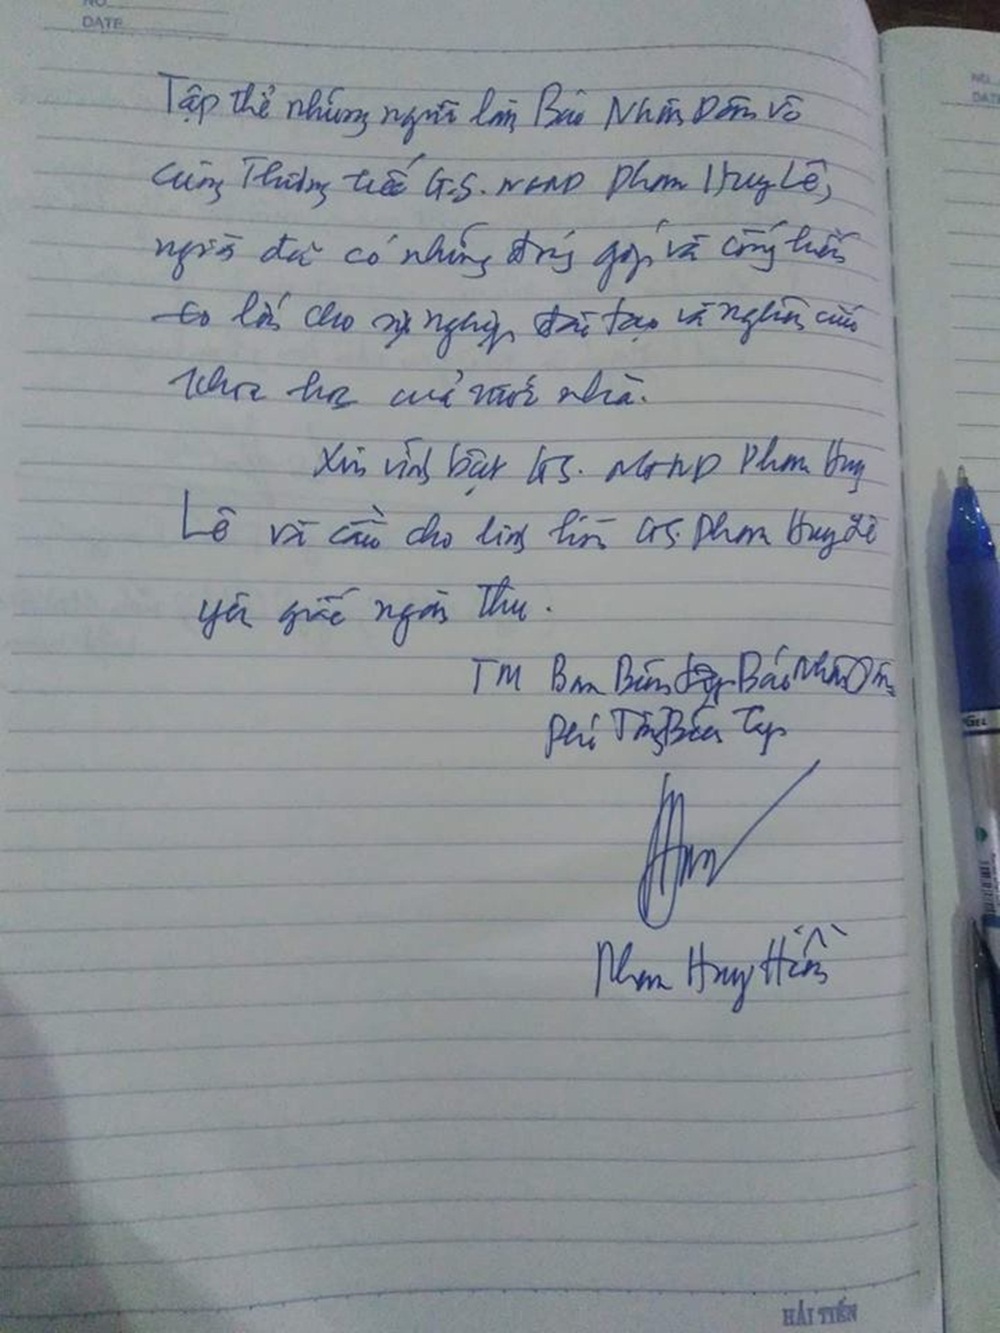 NO.
DATE
Tập thể những người làm Báo Nhân Dân vô
cùng Thương tiếc G.S. NGND Phan Huy Lê,
người đã có những đóng góp và cống hiến
to lớn cho sự nghiệp đào tạo và nghiên cứu
khoa học của nước nhà.
Xin vĩnh biệt GS. NGND Phan Huy
Lê và cầu cho linh hồn GS. Phan Huy Lê
yên giấc ngàn Thu.
TM Ban Biên tập Báo Nhân Dân
Phó Tổng Biên Tập
Phan Huy Hiền
HẢI TIẾN